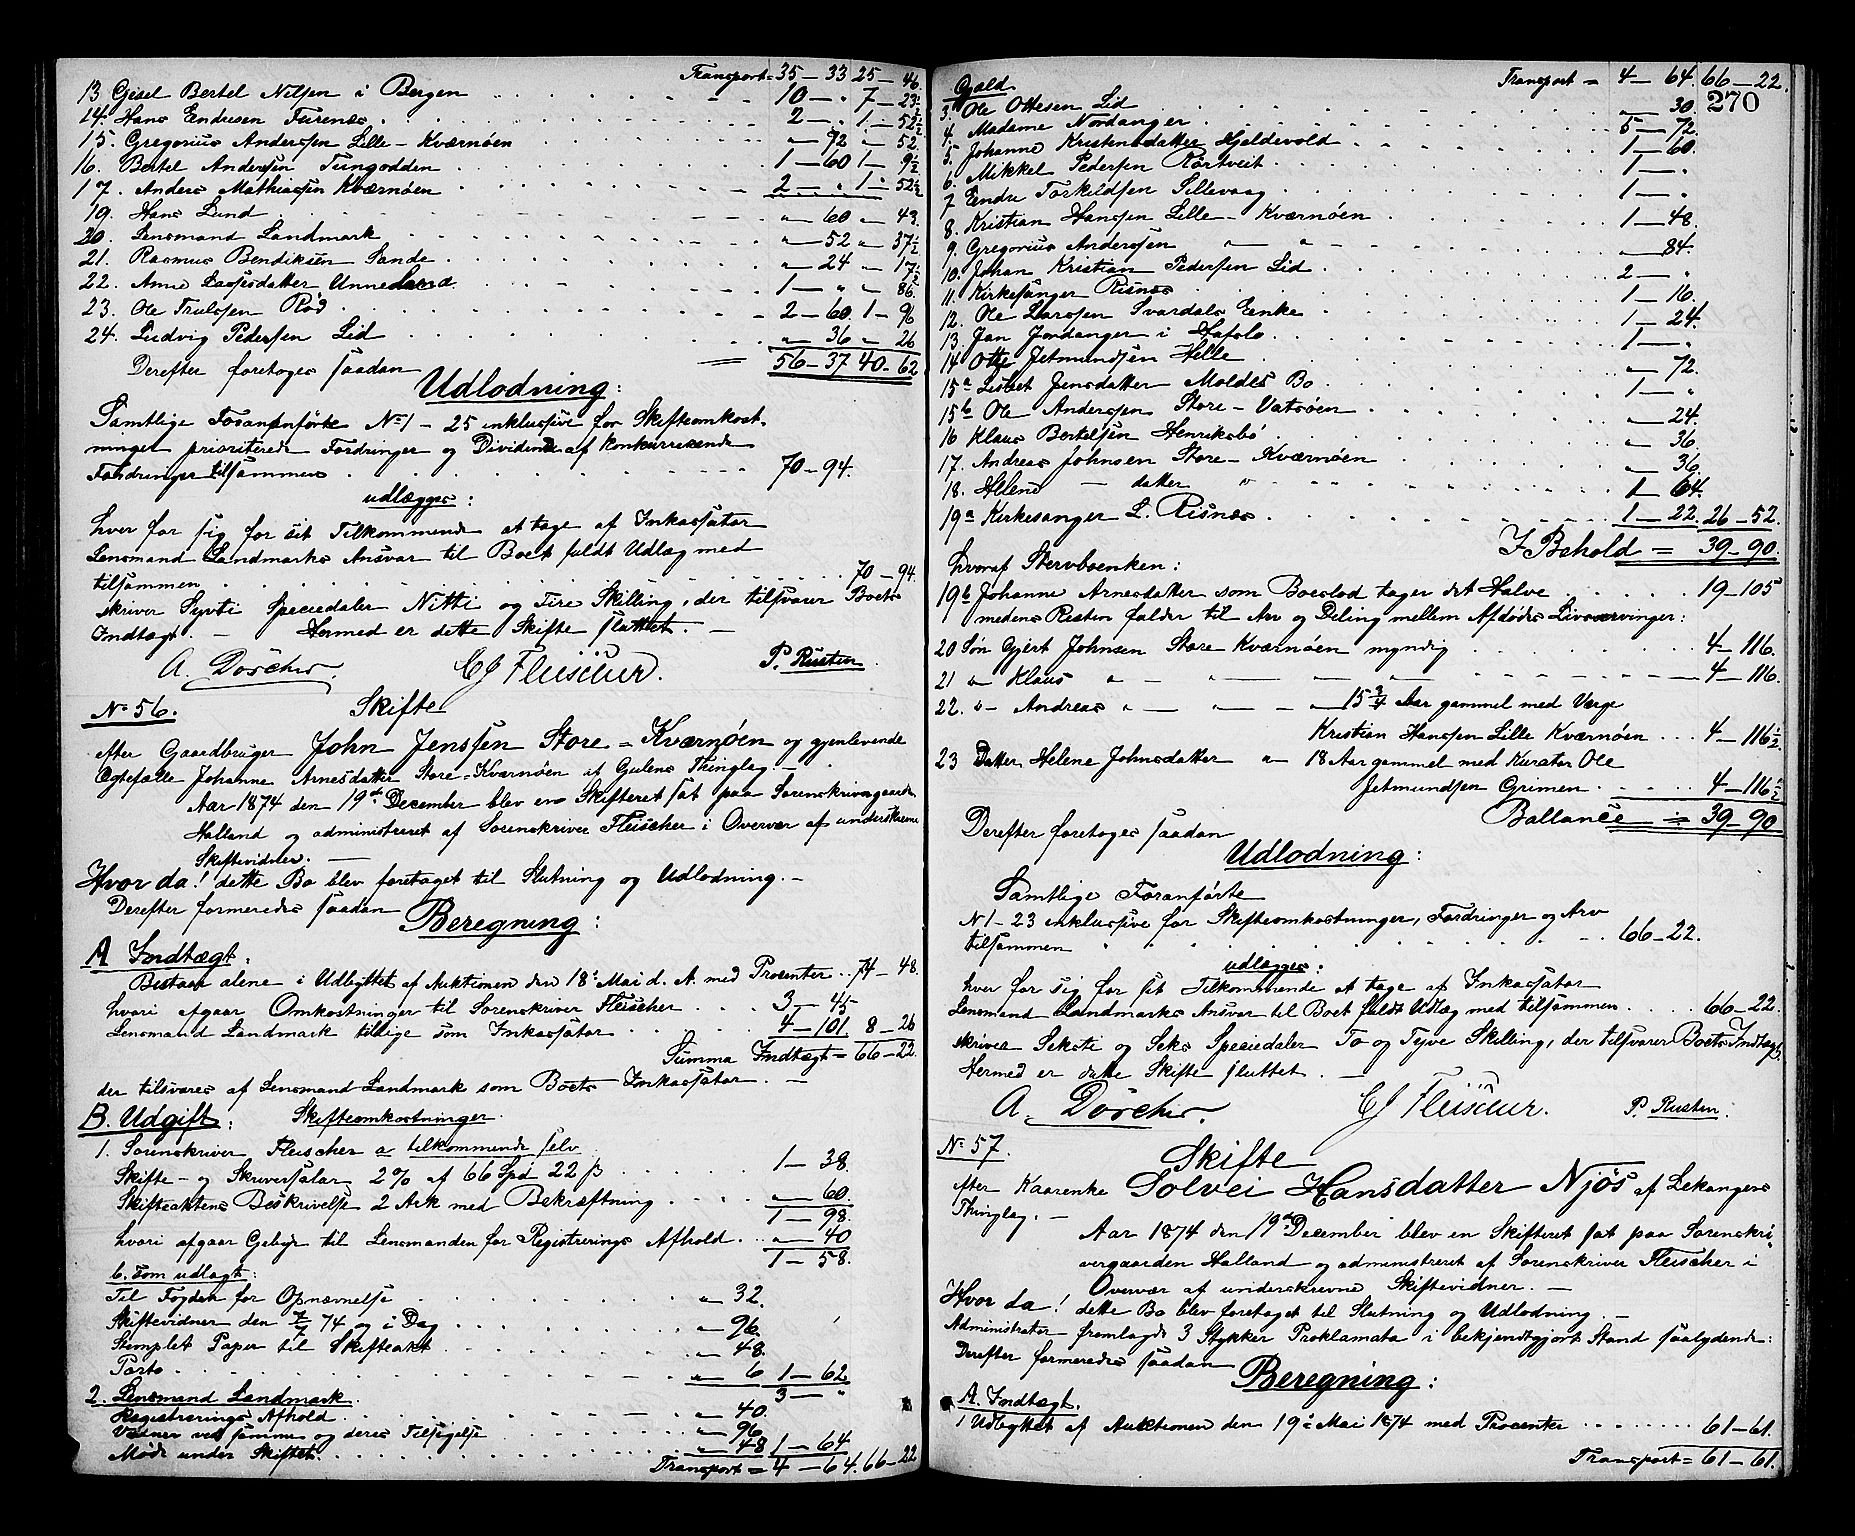 Transport = 35 — 33 25 — 46.
13 Gisel Bertel Nilsen i Bergen . . . 10 — „ 7 — 23½
14. Hans Endresen Furenes . . . 2 — „ 1 — 52½
15. Gregorius Anderssen Lille-Kværnøen „ — 72 „ — 52.
16. Bertel Anderssen Tungodden . . . 1 — 60 1 — 9½
17. Anders Mathiassen Kværnøen . . . 2 — „ 1 — 52½
19. Hans Lund . . . „ — 60 „ — 43.
20. Lensmand Landmark . . . „ — 52 „ — 37½
21. Rasmus Bendiksen Sande . . . „ — 24 „ — 17½
22. Anne Lassesdatter Unneland . . . 1 — „ „ — 86.
23. Ole Trulssen Rød . . . 2 — 60. 1 — 96
24. Ludvig Pedersen Lid . . . „ — 36 „ — 26
56 — 37 40 — 62
Derefter foretoges saadan
Udlodning:
Samtlige Foranførte No 1 — 25 inklusive for Skifteomkost-
ninger prioriterede Fordringer og Dividende af konkurrerende
Fordringer tilsammen . . . 70 — 94.
udlægges:
hver for sig for sit Tilkommende at tage af Inkassator
Lensmand Landmarks Ansvar til Boet fuldt Udlæg med
tilsammen . . . 70 — 94.
skriver Sytti Speciedaler Nitti og Fire Skilling, der tilsvarer Boets
Indtægt. — Hermed er dette Skifte sluttet. —
A. Döscher. CJ Fleischer. P. Rusten.
No 56. Skifte
efter Gaardbruger John Jenssen Store-Kværnøen og gjenlevende
Ægtefælle Johanne Arnesdatter Store-Kværnøen af Gulens Thinglag —
Aar 1874 den 19de December blev en Skifteret sat paa Sorenskrivergaarden
Halland og administreret af Sorenskriver Fleischer i Overvær af underskrevne
Skiftevidner. —
Hvor da! dette Bo blev foretaget til Slutning og Udlodning. —
Derefter formeredes saadan
Beregning:
A Indtægt:
Bestaar alene i Udbyttet af Auktionen den 18: Mai d. A. med Procenter . . 74 — 48.
hvori afgaar Omkostninger til Sorenskriver Fleischer . . . 3 — 45
Lensmand Landmark tillige som Inkassator . . . 4 — 101. 8 — 26
Summa Indtægt = 66 — 22.
der tilsvares af Lensmand Landmark som Boets Inkassator. —
B. Udgift: Skifteomkostninger.
1. Sorenskriver Fleischer a tilkommende selv
Skifte- og Skriversalar 2% af 66 Spd 22 β . . . 1 — 38.
Skifteaktens Beskrivelse 2 Ark med Bekræftning . . . „ — 60.
1 — 98.
hvori afgaar Gebyr til Lensmanden for Registrerings Afhold . . „ — 40
1 — 58.
b. som udlagt:
Til Fogden for Opnævnelse . . . „ 32.
Skiftevidner den 7/7 74 og i Dag . . . „ 96.
Stemplet Papir til Skifteakt . . . „ 48.
Porto . . . „ 6 1 — 62
3 — „
2. Lensmand Landmark.
Registrerings Afhold . . . „ 40.
Vidner ved samme og deres Tilsigelse . . . „ 96
Møde under Skiftet . . . „ 48 1 — 64
Transport = 4 — 64. 66 — 22
Gjæld Transport = 4 — 64. 66 — 22.
270
3. Ole Ottesen Lid . . . „ — 30.
4. Madame Nordanger . . . 5 — 72.
5. Johanne Kristensdatter Hjeldevold . . . 1 — 60.
6. Mikkel Pedersen Rørtveit . . . 1 — „
7 Endre Torkildsen Sillevaag . . . 1 — „
8. Kristian Hanssen Lille-Kværnøen . . . 1 — 48.
9. Gregorius Anderssen „ — „ . . . „ — 84.
10. Johan Kristian Pedersen Lid . . . 2 — „
11. Kirkesanger Risnes . . . 1 — 16.
12. Ole Larssen Svardals Enke . . . 1 — 24.
13. Jan Jordanger i Hafslo . . . 1 — „
14. Otte Jetmundsen Helle . . . „ — 72.
15a Lisbet Jensdatter Moldes Bo . . . 1 — „
15b Ole Anderssen Store-Vatsøen . . . „ — 24.
16 Klaus Bertelsen Henriksbø . . . „ — 36
17. Andreas Johnsen Store-Kværnøen . . . „ — 36
18. Helene — datter „ . . . 1 — 64.
19a Kirkesanger L. Risnes . . . 1 — 22. 26 — 52.
I Behold = 39 — 90.
hvoraf Stervboenken:
19b Johanne Arnesdatter som Boeslod tager det Halve . . . 19 — 105
medens Resten falder til Arv og Deling mellem Afdødes Livsarvinger:
20 Søn Gjert Johnsen Store Kværnøen myndig . . . 4 — 116.
21 „ Klaus „ — „ — „ . . . 4 — 116.
22. „ - Andreas „ — „ — „ 15¾ Aar gammel med Verge
Kristian Hanssen Lille Kværnøen . . . 4 — 116½
23 Datter Helene Johnsdatter „ 18 Aar gammel med Kurator Ole
Jetmundsen Grimen . . . 4 — 116½
Ballance = 39 — 90
Derefter foretoges saadan
Udlodning:
Samtlige Foranførte
N 1 — 23 inklusive for Skifteomkostninger, Fordringer og Arv
tilsammen . . . 66 — 22.
udlægges:
hver for sig for sit Tilkommende at tage af Inkassator
Lensmand Landmarks Ansvar til Boet fuldt Udlæg med tilsammen . . . 66 — 22.
skriver Seksti og Seks Speciedaler To og Tyve Skilling, der tilsvarer Boets Indtægt.
Hermed er dette Skifte sluttet. —
A. Döscher. CJ Fleischer. P. Rusten.
No 57.
Skifte
efter Kaarenke Solvei Hansdatter Njøs af Lekangers
Thinglag. —
Aar 1874 den 19de December blev en Skifteret sat paa Sorenskri-
vergaarden Halland og administreret af Sorenskriver Fleischer i
Overvær af underskrevne Skiftevidner. —
Hvor da! dette Bo blev foretaget til Slutning og Udlodning —
Administrator fremlagde 3 Stykker Proklamata i bekjendtgjort Stand saalydende:
Derefter formeredes saadan
Beregning:
A. Indtægt.
1 Udbyttet af Auktionen den 19: Mai 1874 med Procenter . . . 61 — 61.
Transport = 61 — 61.